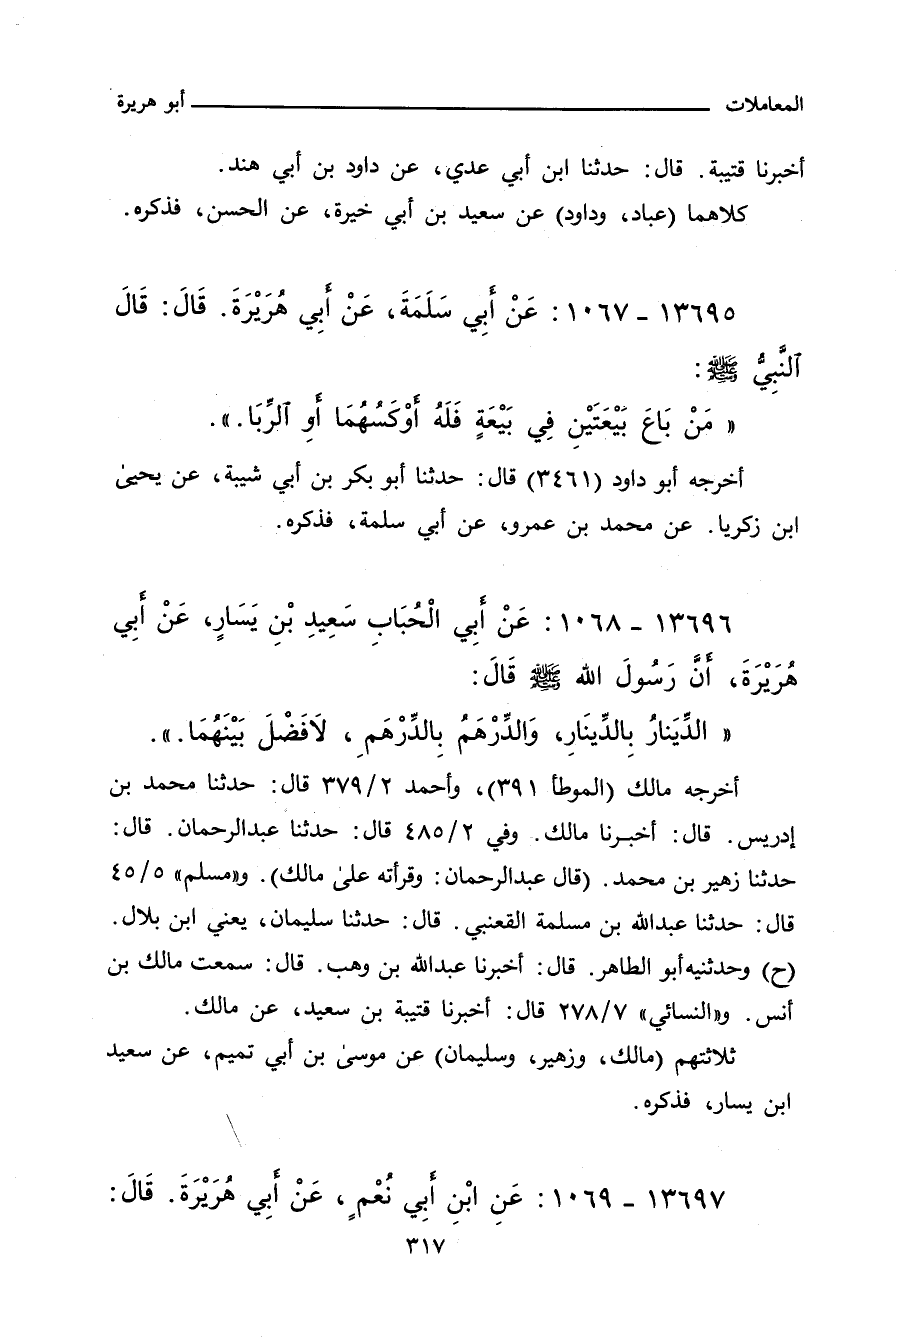 المعاملات ــــــــــــــــ أبو هريرة
أخبرنا قتيبة. قال: حدثنا ابن أبي عدي، عن داود بن أبي هند.
كلاهما (عباد، وداود) عن سعيد بن أبي خيرة، عن الحسن، فذكره.
١٣٦٩٥ - ١٠٦٧: عَنْ أَبِي سَلَمَةَ، عَنْ أَبِي هُرَيْرَةَ. قَالَ: قَالَ
ٱلنَّبِيُّ ﷺ:
« مَنْ بَاعَ بَيْعَتَيْنِ فِي بَيْعَةٍ فَلَهُ أَوْكَسُهُمَا أَوِ ٱلرِّبَا.».
أخرجه أبو داود (٣٤٦١) قال: حدثنا أبو بكر بن أبي شيبة، عن يحيىٰ
ابن زكريا. عن محمد بن عمرو، عن أبي سلمة، فذكره.
١٣٦٩٦ - ١٠٦٨: عَنْ أَبِي الْحُبَابِ سَعِيدِ بْنِ يَسَارٍ، عَنْ أَبِي
هُرَيْرَةَ، أَنَّ رَسُولَ الله ﷺ قَالَ:
« الدِّينَارُ بِالدِّينَارِ، وَالدِّرْهَمُ بِالدِّرْهَمِ، لَافَضْلَ بَيْنَهُمَا.».
أخرجه مالك (الموطأ ٣٩١)، وأحمد ٣٧٩/٢ قال: حدثنا محمد بن
إدريس. قال: أخبرنا مالك. وفي ٤٨٥/٢ قال: حدثنا عبدالرحمان. قال:
حدثنا زهير بن محمد. (قال عبدالرحمان: وقرأته علىٰ مالك). و«مسلم» ٤٥/٥
قال: حدثنا عبدالله بن مسلمة القعنبي. قال: حدثنا سليمان، يعني ابن بلال.
(ح) وحدثنيه أبو الطاهر. قال: أخبرنا عبدالله بن وهب. قال: سمعت مالك بن
أنس. و«النسائي» ٢٧٨/٧ قال: أخبرنا قتيبة بن سعيد، عن مالك.
ثلاثتهم (مالك، وزهير، وسليمان) عن موسىٰ بن أبي تميم، عن سعيد
ابن يسار، فذكره.
١٣٦٩٧ - ١٠٦٩: عَنِ ابْنِ أَبِي نُعْمٍ، عَنْ أَبِي هُرَيْرَةَ. قَالَ:
٣١٧